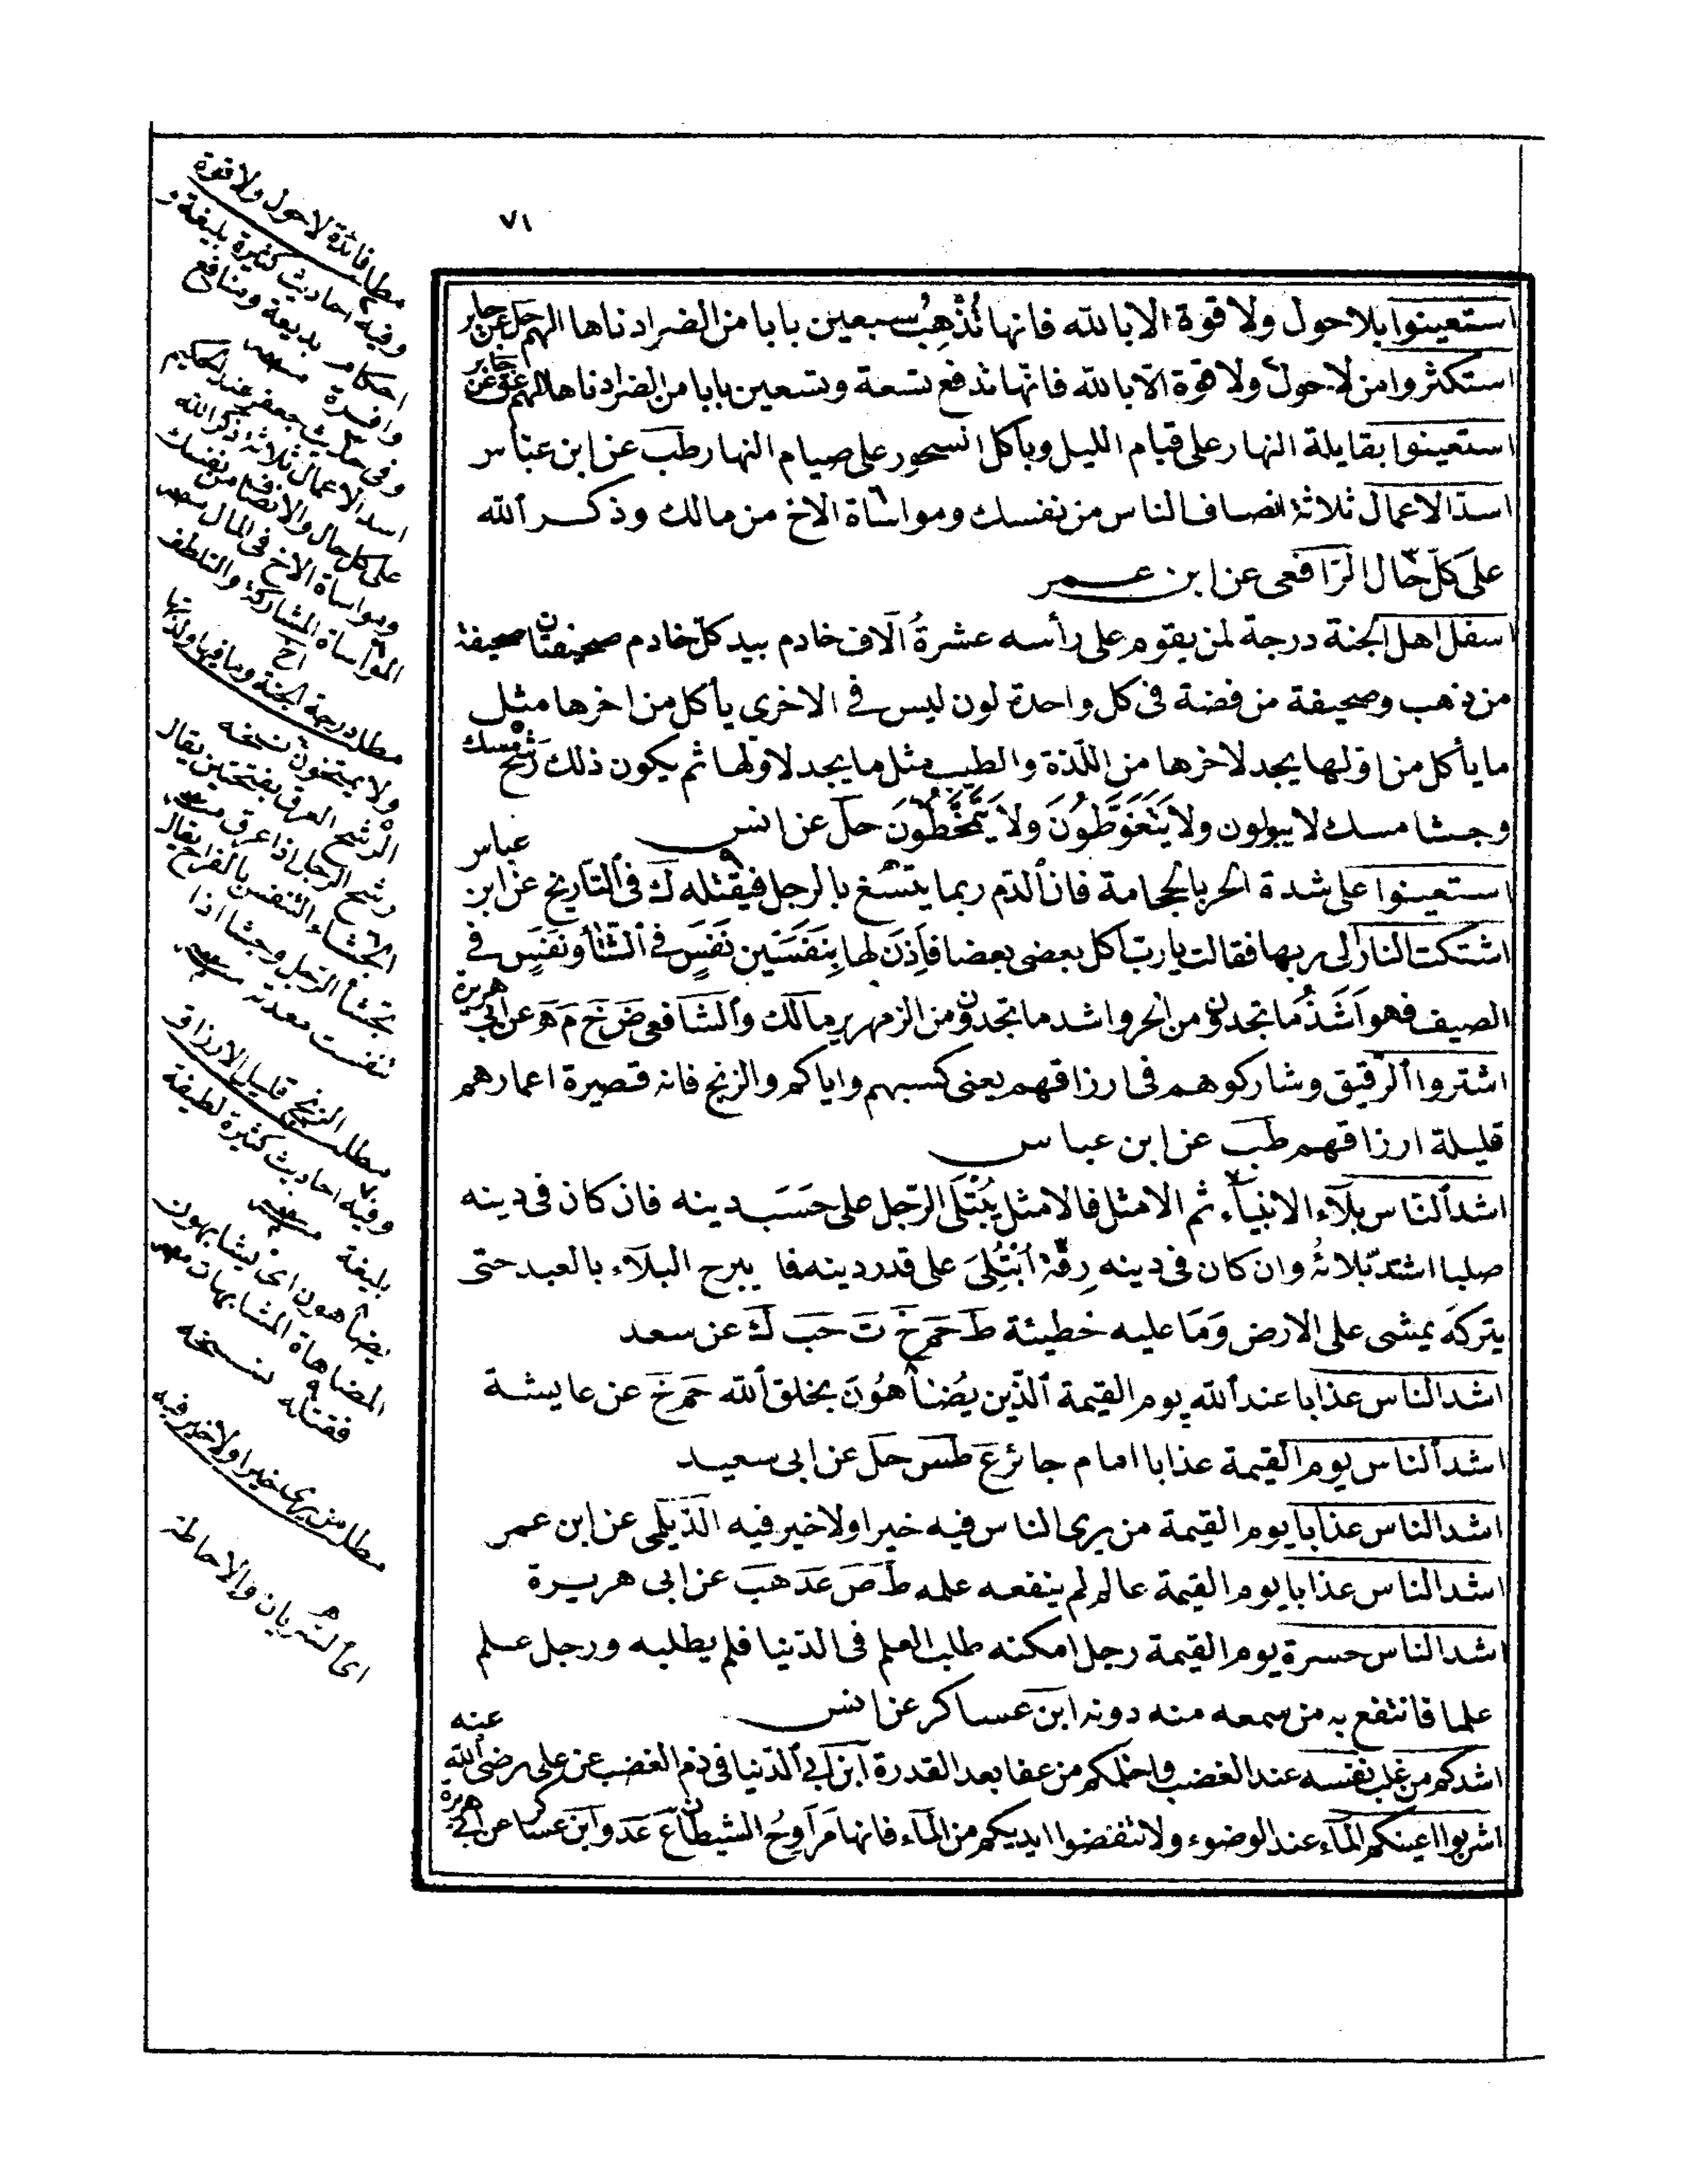 ٧١
استعينوا بلاحول ولا قوة الا بالله فانها تُذْهِبُ سبعين بابا من الضر ادناها الهم حل عن جابر
استكثروا من لاحول ولا قوة الّا بالله فانّها تدفع تسعة وتسعين بابا من الضر ادناها الهم عق عن جابر
استعينوا بقايلة النهار على قيام الليل وبأكل السحور على صيام النهار طب عن ابن عباس
اسدّ الاعمال ثلاثة انصاف الناس من نفسك ومواساة الاخ من مالك وذكر الله
على كلّ حال الرّافعى عن ابن عمر
اسفل اهل الجنة درجة لمن يقوم على رأسه عشرةُ آلاف خادم بيد كلّ خادم صحيفتان صحيفة
من ذهب وصحيفة من فضة فى كل واحدة لون ليس فى الاخرى يأكل من اخرها مثل
ما يأكل من اوّلها يجد لاخرها من اللّذة والطيب مثل ما يجد لاوّلها ثم يكون ذلك رشح مسك
وجشا مسك لا يبولون ولا يَتَغَوَّطُونَ ولا يَتَمَخَّطُونَ حل عن انس
استعينوا على شدة الحر بالحجامة فان الدّم ربما يتبيّغ بالرجل فيقتله ك فى التّاريخ عن ابن عباس
اشتكت النار الى ربها فقالت يا رب اكل بعضى بعضا فأذن لها بِنَفَسَيْن نَفَسٍ فى الشّتاء ونَفَسٍ فى
الصيف فهو اَشَدُّ ما تجدون من الحر واشد ما تجدون من الزمهرير مالك والشافعى ض خ م ه عن ابى هريرة
اشتروا الرّقيق وشاركوهم فى ارزاقهم يعنى كسبهم واياكم والزنج فانه قصيرة اعمارهم
قليلة ارزاقهم طب عن ابن عباس
اشد النّاس بلآء الانبيآء ثم الامثل فالامثل يُبْتَلَى الرّجل على حَسَب دينه فان كان فى دينه
صلبا اشتدّ بلائُه وان كان فى دينه رِقّة ابْتُلِىَ على قدر دينه فما يبرح البلآء بالعبد حتى
يتركه يمشى على الارض وَمَا عليه خطيئة ط حم خ ت حب ك عن سعد
اشد الناس عذابا عند الله يوم القيمة الّذين يُضَاهُونَ بخلق الله حم خ عن عايشة
اشد النّاس يوم القيمة عذابا امام جائر ع طس حل عن ابى سعيد
اشد الناس عذابا يوم القيمة من يرى الناس فيه خيرا ولا خير فيه الدّيلمى عن ابن عمر
اشد الناس عذابا يوم القيمة عالم لم ينفعه علمه ط ص عد هب عن ابى هريرة
اشد الناس حسرة يوم القيمة رجل امكنه طلب العلم فى الدّنيا فلم يطلبه ورجل علم
علما فانتفع به من سمعه منه دونه ابن عساكر عن انس
اشدكم من غلب نفسه عند الغضب واحلمكم من عفا بعد القدرة ابن ابى الدّنيا فى ذم الغضب عن على رضى الله عنه
اشربوا اعينكم المآء عند الوضوء ولا تنفضوا ايديكم من المآء فانها مَرَاوِحُ الشيطان ع عد وابن عساكر عن ابى هريرة
مطلـ فائدة لاحول ولا قوة
وفيه احاديث كثيرة بليغة و
احكام بديعة ومنافع
وافرة
وفى حديث جعفر عند الحكيم
اسد الاعمال ثلاثة ذكر الله
على كل حال والانصاف من نفسك
ومواساة الاخ فى المال
المواساة المشاركة والتلطف
اح
مطلـ درجة الجنة وما فيها ولذتها
ولا يمتخون نسخه
الرشح العرق بفتحتين يقال
رشح الرجل اذا عرق
الجشاء التنفس بالفراخ يقال
تجشأ الرجل وجشا اذا
تنفست معدته
مطلـ الزنج قليل الارزاق
وفيه احاديث كثيرة لطيفة
بليغة
يضاهون اى يشابهون
المضاهاة المشابهات
فقتله نسخه
مطلـ من يرى خيرا ولا خير فيه
اى السريان والاحاطة